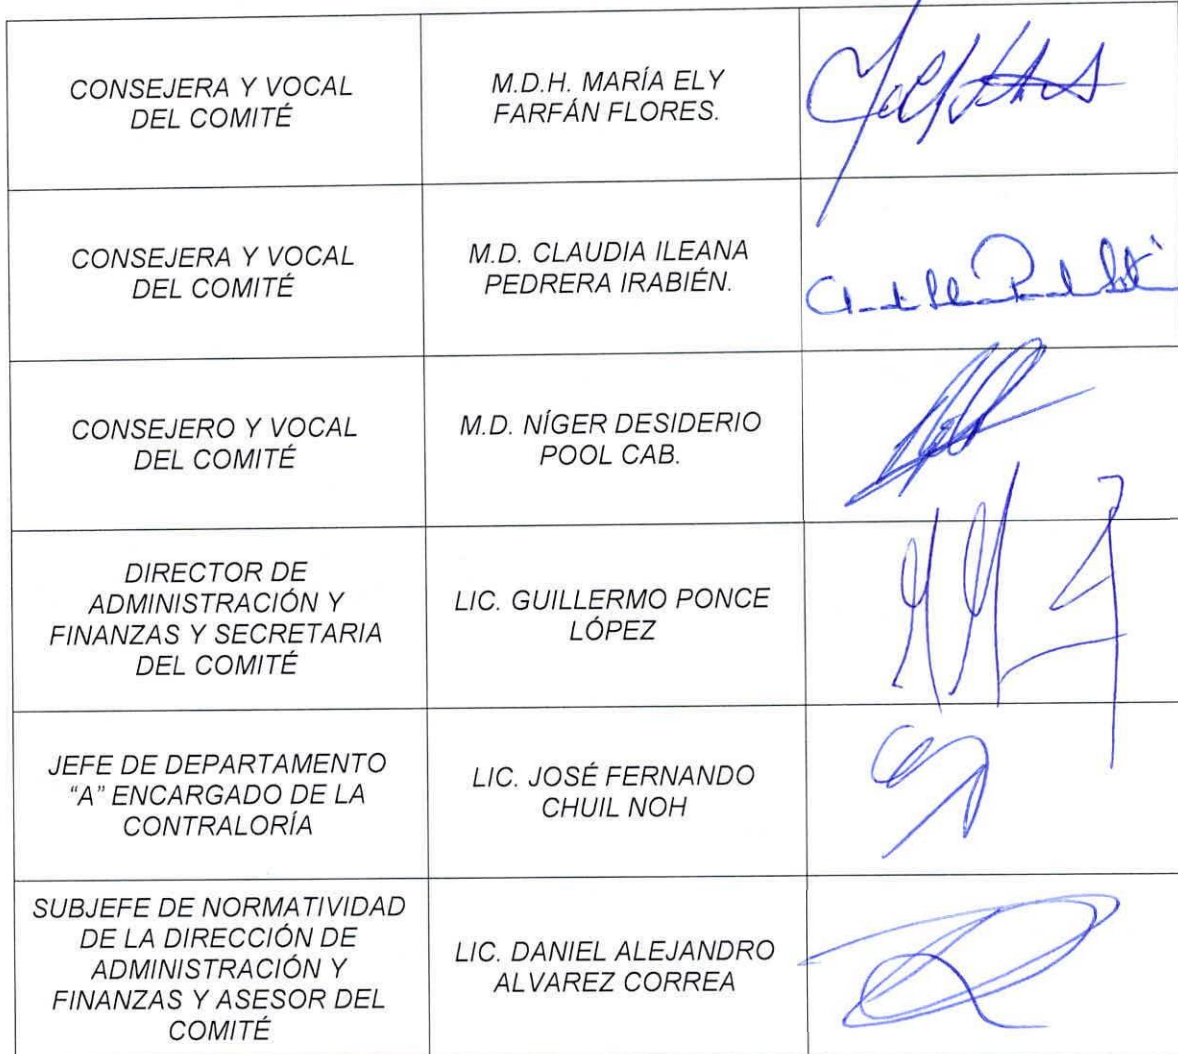 CONSEJERA Y VOCAL
DEL COMITÉ
M.D.H. MARÍA ELY
FARFÁN FLORES.
CONSEJERA Y VOCAL
DEL COMITÉ
M.D. CLAUDIA ILEANA
PEDRERA IRABIÉN.
CONSEJERO Y VOCAL
DEL COMITÉ
M.D. NÍGER DESIDERIO
POOL CAB.
DIRECTOR DE
ADMINISTRACIÓN Y
FINANZAS Y SECRETARIA
DEL COMITÉ
LIC. GUILLERMO PONCE
LÓPEZ
JEFE DE DEPARTAMENTO
“A” ENCARGADO DE LA
CONTRALORÍA
LIC. JOSÉ FERNANDO
CHUIL NOH
SUBJEFE DE NORMATIVIDAD
DE LA DIRECCIÓN DE
ADMINISTRACIÓN Y
FINANZAS Y ASESOR DEL
COMITÉ
LIC. DANIEL ALEJANDRO
ALVAREZ CORREA